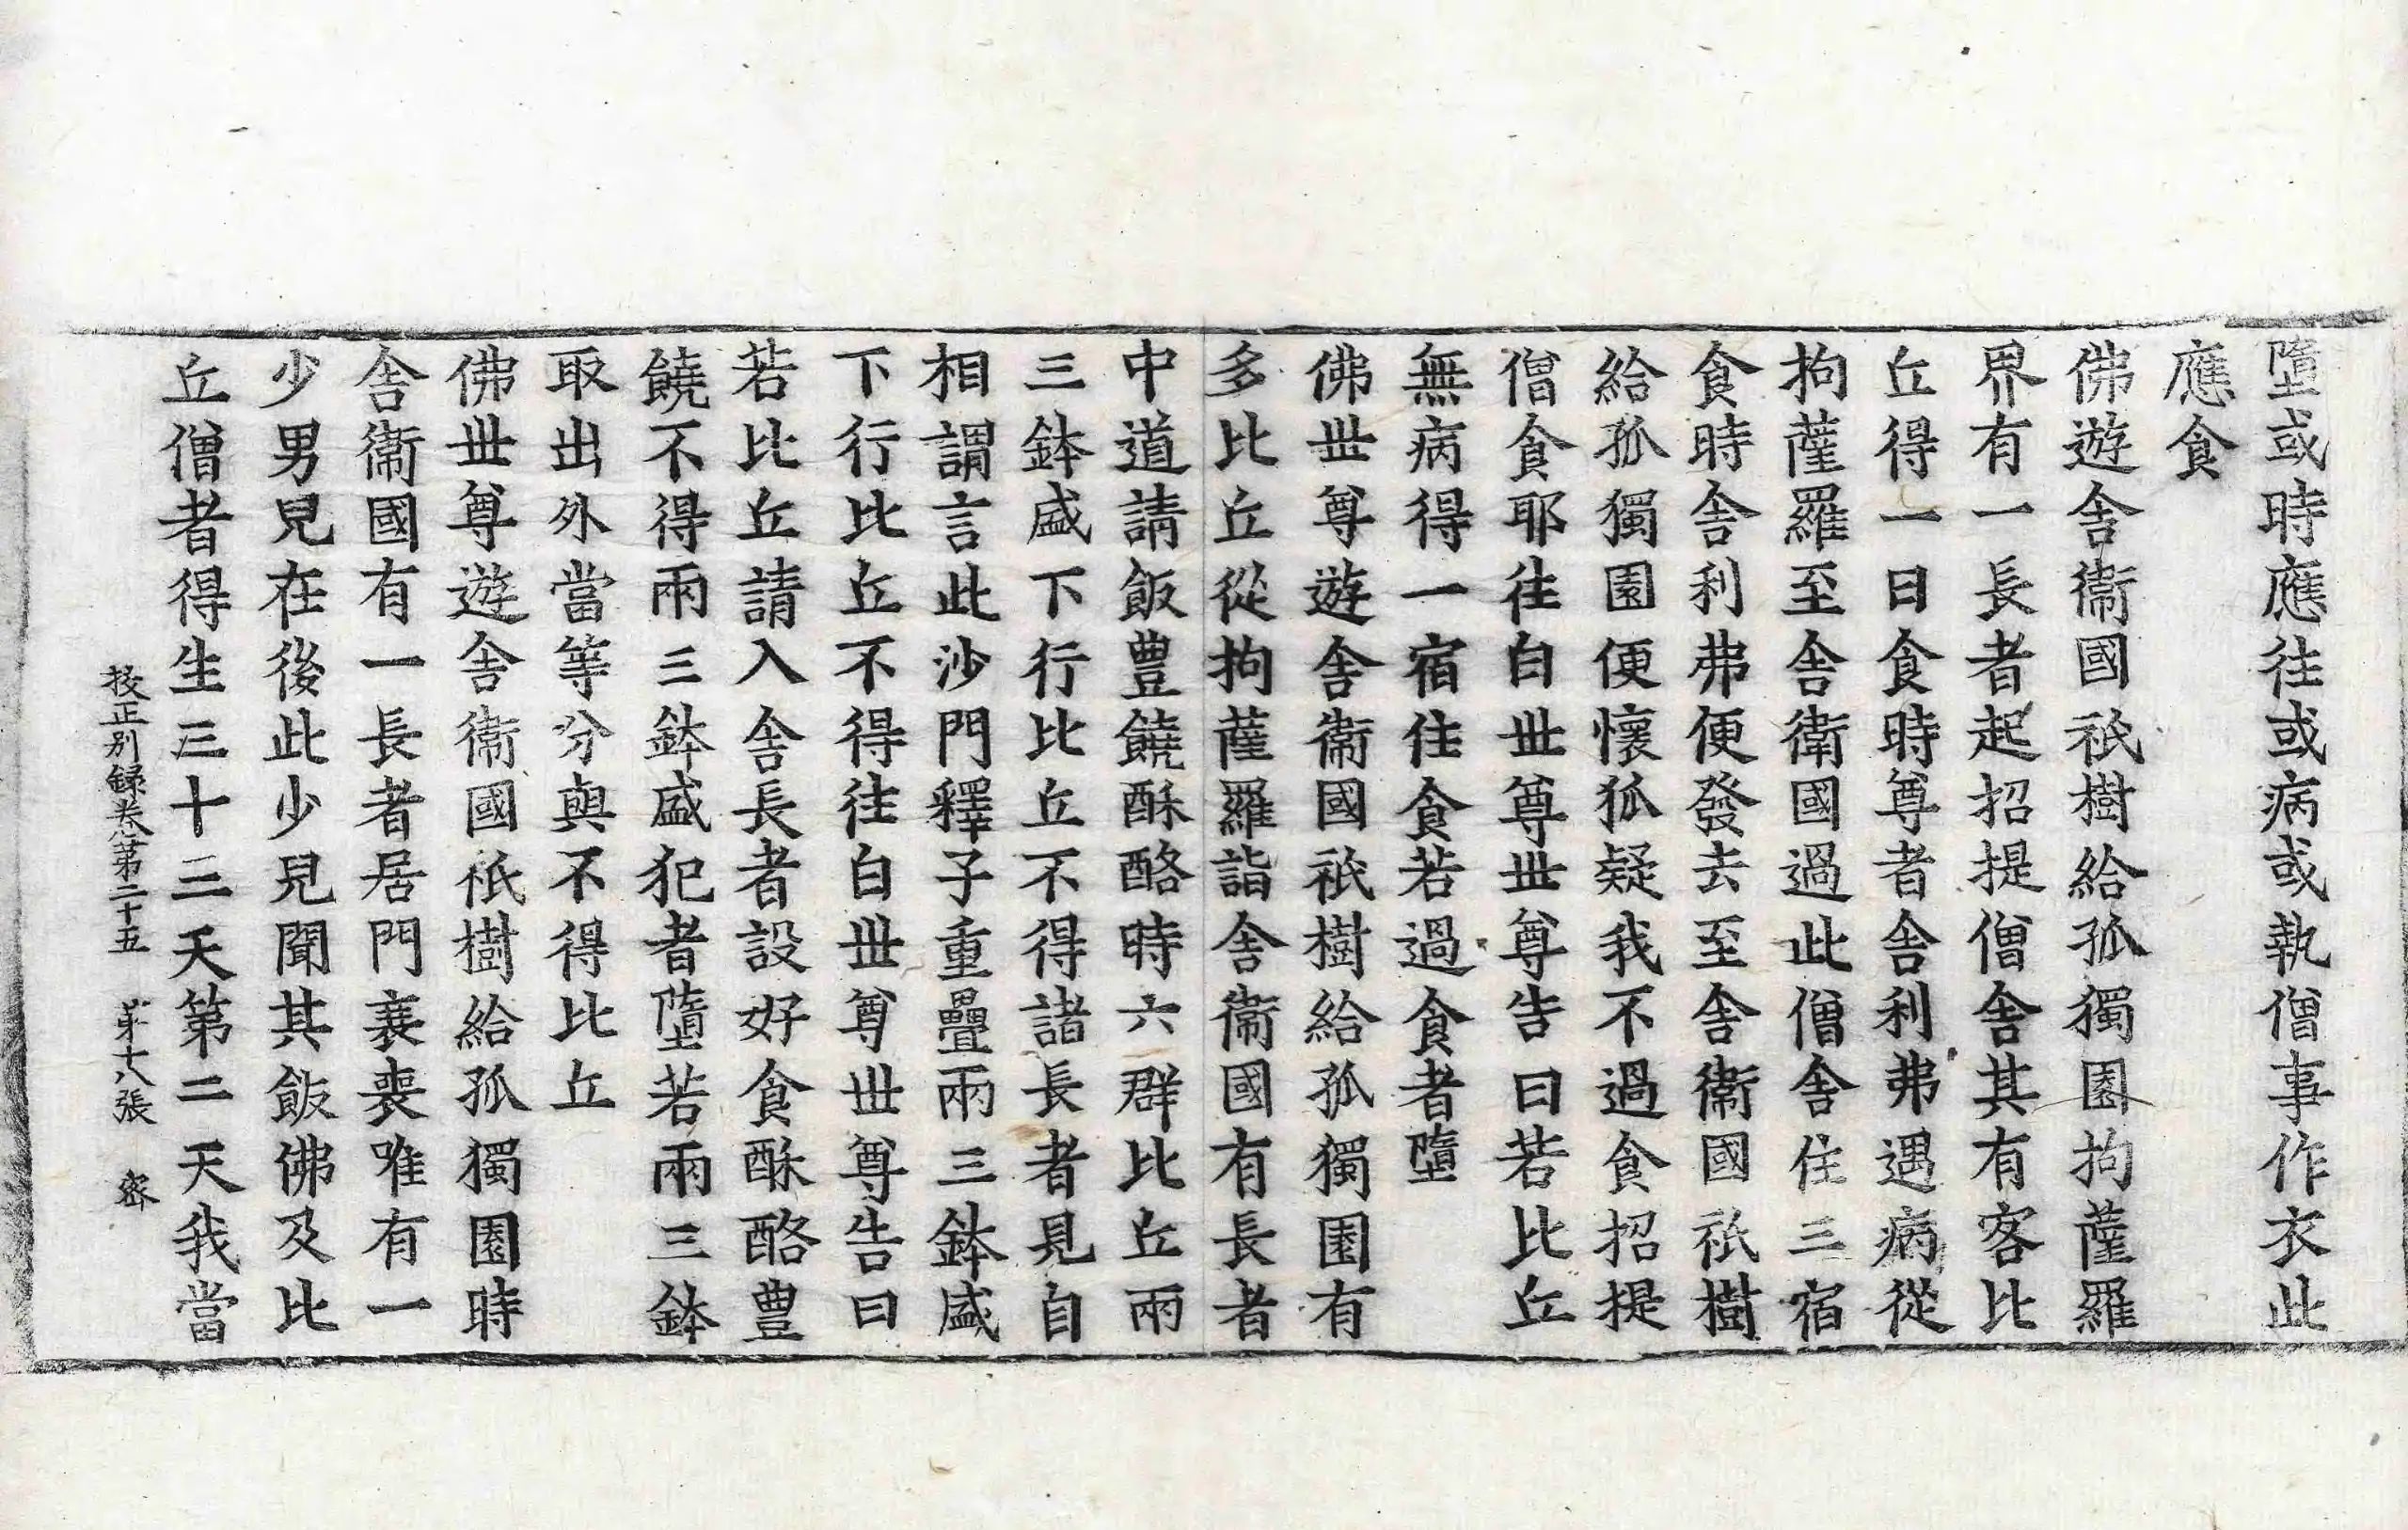 墮或時應往或病或執僧事作衣此
應食
佛遊舍衞國祇樹給孤獨園拘薩羅
界有一長者起招提僧舍其有客比
丘得一日食時尊者舍利弗遇病從
拘薩羅至舍衛國過此僧舍住三宿
食時舍利弗便發去至舍衞國祇樹
給孤獨園便懷狐疑我不過食招提
僧食耶往白世尊世尊告曰若比丘
無病得一宿住食若過食者墮
佛世尊遊舍衞國祇樹給孤獨園有
多比丘從拘薩羅詣舍衞國有長者
中道請飯豊饒酥酪時六群比丘兩
三鉢盛下行比丘不得諸長者見自
相謂言此沙門釋子重疊兩三鉢盛
下行比丘不得往白世尊世尊告曰
若比丘請入舍長者設好食酥酪豊
饒不得兩三鉢盛犯者墮若兩三鉢
取出外當等分與不得比丘
佛世尊遊舍衞國祇樹給孤獨園時
舍衞國有一長者居門衰喪唯有一
少男兒在後此少兒聞其飯佛及比
丘僧者得生三十三天第二天我當
挍正別録卷第二十五　第十八張　密